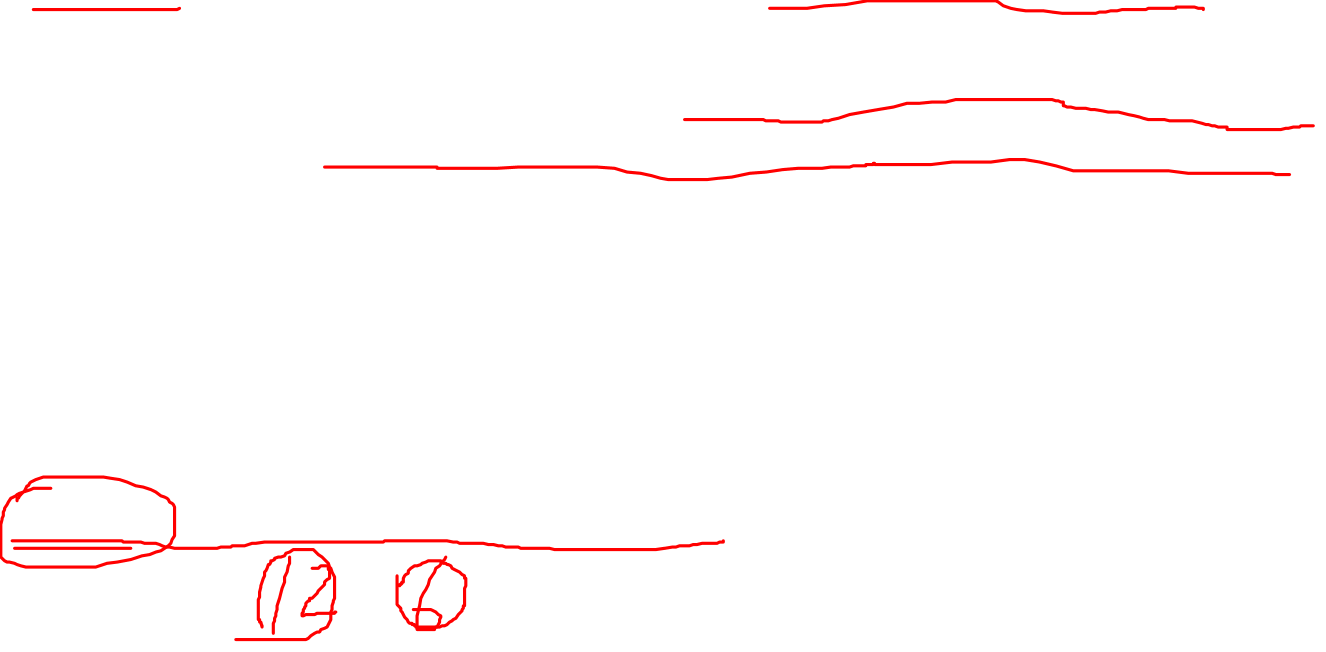 12 6